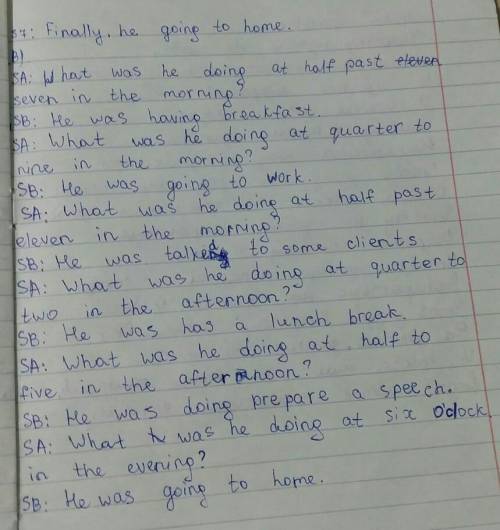 S7: Finally, he going to home.
B)
SA: What was he doing at half past eleven
seven in the morning?
SB: He was having breakfast.
SA: What was he doing at quarter to
nine in the morning?
SB: He was going to work.
SA: What was he doing at half past
eleven in the morning?
SB: He was talked to some clients
SA: What was he doing at quarter to
two in the afternoon?
SB: He was has a lunch break.
SA: What was he doing at half to
five in the afternoon?
SB: He was doing prepare a speech.
SA: What was he doing at six o'clock
in the evening?
SB: He was going to home.